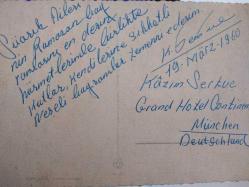 Süarik Ailesi
nin Ramazan bay
ramlarını en derin
hürmetlerimle birlikte
kutlar, kendilerine sıhhatli
neşeli bayramlar temenni ederim.
19. MART 1960
Kâzım Serkuç
Grand Hotel Continental
München
Deutschland